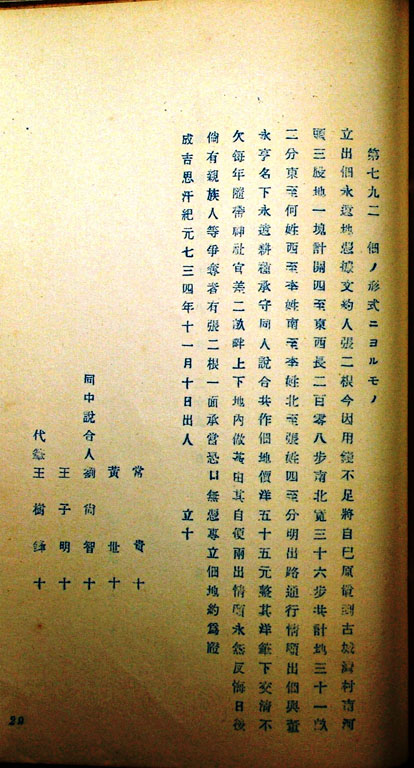 第七九二 佃ノ形式ニヨルモノ
立出佃永遠地憑據文約人張二根今因用錢不足將自己原置到古城灣村南河
頭三股地一塊計開四至東西長二百零八步南北寬三十六步共計地三十一畝
二分東至何姓西至李姓南至李姓北至張姓四至分明出路通行情願出佃與董
永亨名下永遠耕種承守同人說合共作佃地價洋五十五元整其洋筆下交清不
欠每年隨帶神社官差二畝畔上下地內做塋由其自便兩出情願永無反悔日後
倘有親族人等爭奪者有張二根一面承當恐口無憑專立佃地約為證
成吉思汗紀元七三四年十一月十日出人 立十
常 貴 十
黃 世 十
同中說合人 劉尚智 十
王子明 十
代 王樹 十